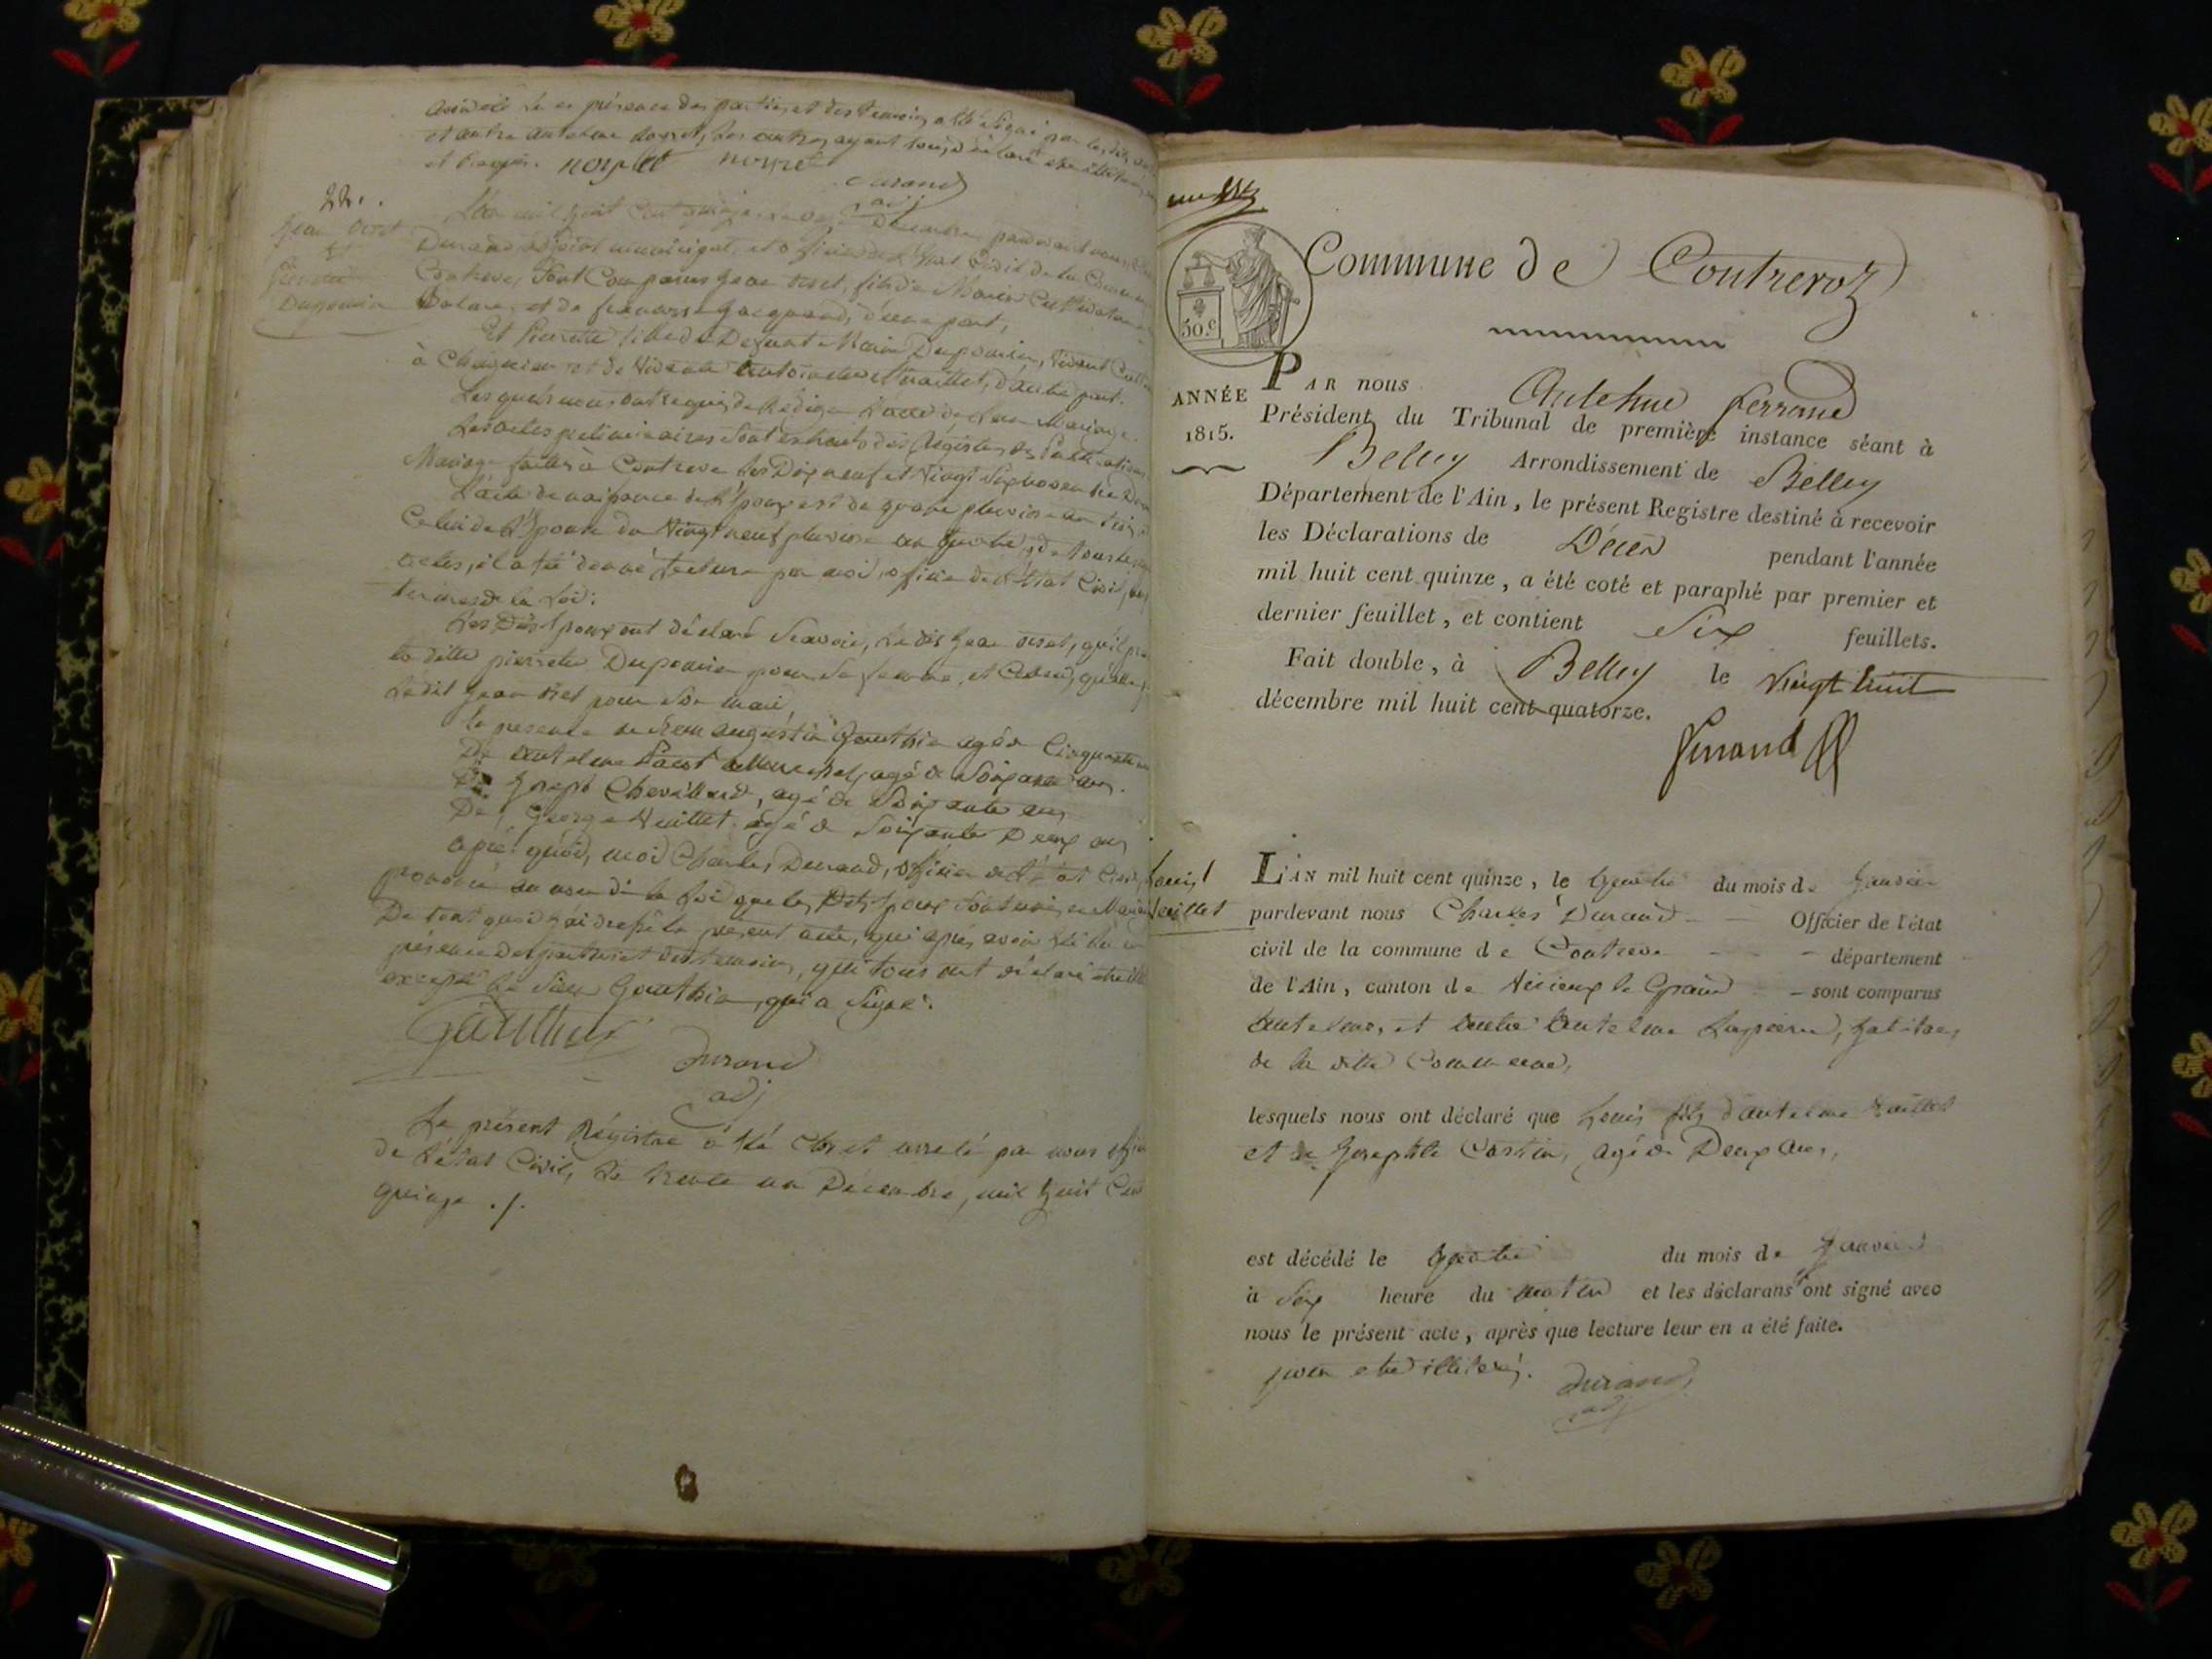 et autre antelme
et Requis. noyret noyret
Durand
adj
22.
Jean
et
Dupommier
L'an mil huit Cent quinze, Decembre pardevant nous
Durand adjoint municipal, et officier de l'Etat Civil de la Commune
Contreve, Sont Comparus Jean fils de Marin
et de françoise d'une part,
Et Pierrette fille de Defunt Marin Dupommier, vivant
à et de vivante d'autre part.
Lesquels nous ont requis de Rédiger l'acte de leur Mariage.
Les actes preliminaires Sont extraits des Régistres des Publications
Mariage faites à Contreve les Dix neuf et Vingt Six novembre
L'acte de naissance de l'Epoux est du quatre pluviose an trois
Celui de l'Epouse du Vingt neuf pluviose an quatre, de tous les
actes, il a été donné lecture par moi, officier de l'état Civil, aux
termes de la Loi:
Les Dits Epoux ont déclaré Scavoir, le dit Jean qu'il
la ditte pierrette Dupommier pour Sa femme, et Celle ci, qu'elle
Ledit Jean pour Son mari,
En presence de Sieur augustin Gauthier agé de Cinquante
De antelme agé de Soixante ans.
De Joseph Chevillard, agé de Soixante ans
De George Vuillet agé de Soixante Deux ans
après quoi, moi Charles Durand, officier de l'état Civil,
prononcé au nom de la Loi que les Dits Epoux Sont unis en Mariage
De tout quoi j'ai dressé le present acte, qui après avoir été lu en
présence des parties et des temoins, qui tous ont déclaré être
excepté le Sieur Gauthier, qui a Signé.
Gauthier
Durand
adj
Le présent Régistre a été Clos et arreté par nous
de l'état Civil, le trente un Décembre, mil huit Cent
quinze ./.
Commune de Contrevoz
50.c
ANNÉE
1815.
PAR nous Antelme ferrand
Président du Tribunal de première instance séant à
Belley Arrondissement de Belley
Département de l'Ain, le présent Registre destiné à recevoir
les Déclarations de Décès pendant l'année
mil huit cent quinze, a été coté et paraphé par premier et
dernier feuillet, et contient Six feuillets.
Fait double, à Belley le vingt huit
décembre mil huit cent quatorze.
ferrand
Louis
Vuillet
L'AN mil huit cent quinze, le quatre du mois de Janvier
pardevant nous Charles Durand Officier de l'état
civil de la commune de Contreve département
de l'Ain, canton de Virieux le Grand sont comparus
antelme, et autre antelme Lapierre, habitans
de la ditte Commune,
lesquels nous ont déclaré que Louis fils d'antelme Vuillet
et de Josephte agé de Deux ans,
est décédé le quatre du mois de Janvier
à Six heure du matin et les déclarans ont signé avec
nous le présent acte, après que lecture leur en a été faite.
être illiterés.
Durand
adj